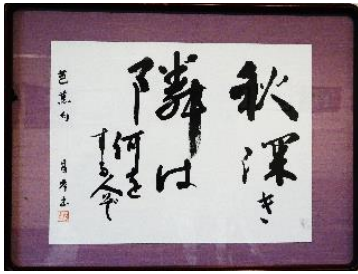 秋深き
隣は
何を
する人ぞ
芭蕉句